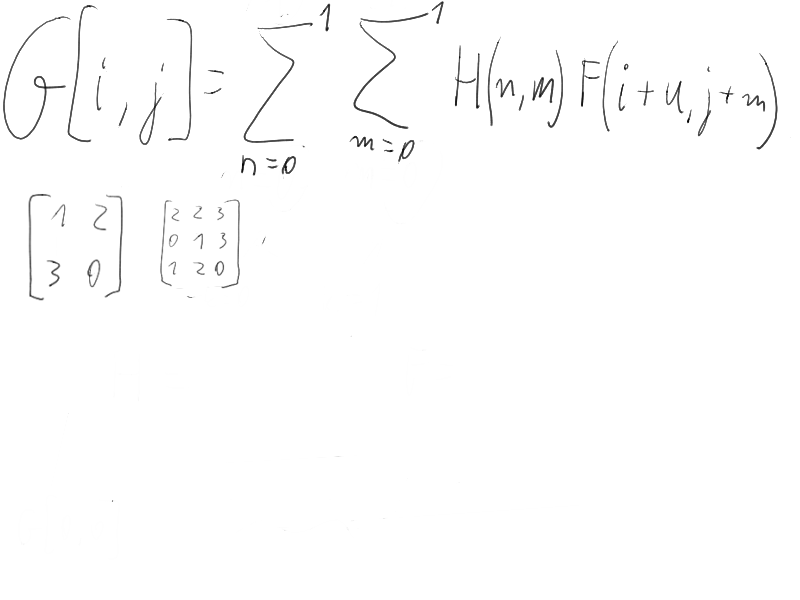 G[i,j] = ∑_{n=0}^{1} ∑_{m=0}^{1} H(n,m) F(i+u, j+m)
[1 2; 3 0] [2 2 3; 0 1 3; 1 2 0]